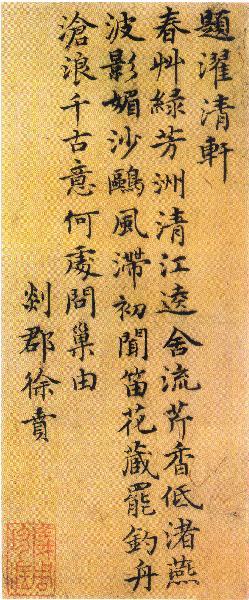 題濯清軒
春艸綠芳洲清江遶舍流芹香低渚燕
波影媚沙鷗風滯初聞笛花藏罷釣舟
滄浪千古意何處問巢由
剡郡徐賁